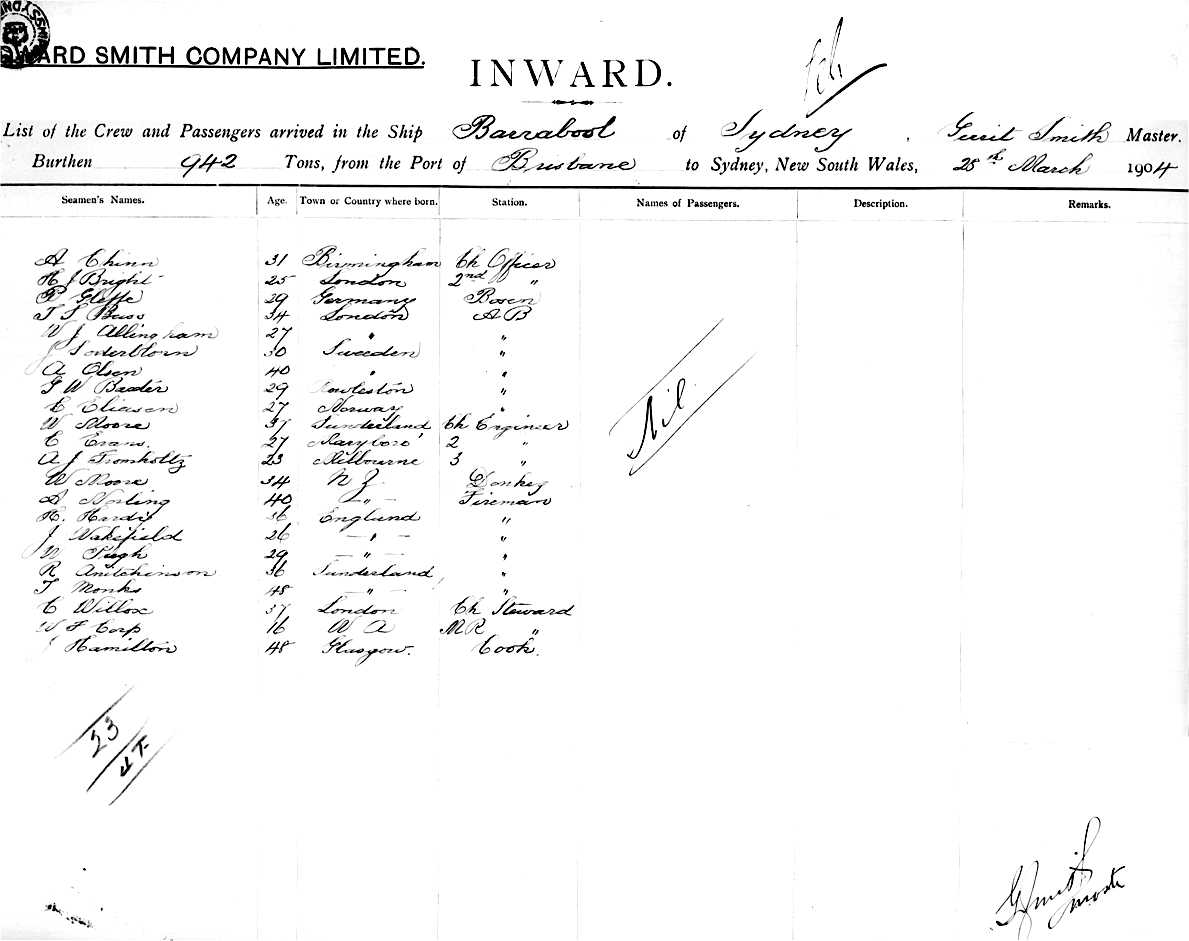 WARD SMITH COMPANY LIMITED.
INWARD.
List of the Crew and Passengers arrived in the Ship Barrabool of Sydney, Gerrit Smith Master.
Burthen 942 Tons, from the Port of Brisbane to Sydney, New South Wales, 28th March 1904
Seamen's Names. Age. Town or Country where born. Station. Names of Passengers. Description. Remarks.
A Chinn 31 Birmingham Ch Officer
H J Bright 25 London 2nd "
P Gleffe 29 Germany Bosen
T S Buss 34 London A B
W J Allingham 27 " "
J Soderblom 30 Sweden "
A Olsen 40 " "
G W Baxter 29 "
E Eliasen 27 Norway "
W Moore 37 Sunderland Ch Engineer
C Evans. 27 Maryboro' 2 "
A J Fromholtz 23 Melbourne 3 "
W Moore 34 N Z. Donkey
A Norling 40 - " - Fireman
H. Hardy 36 England "
J Wakefield 26 - " - "
W Pugh 29 - " - "
R Anitchinson 36 Sunderland "
T Monks 48 - " - "
C Willox 37 London Ch Steward
W F Corp 16 W A M R "
J Hamilton 48 Glasgow. Cook.
Nil
23